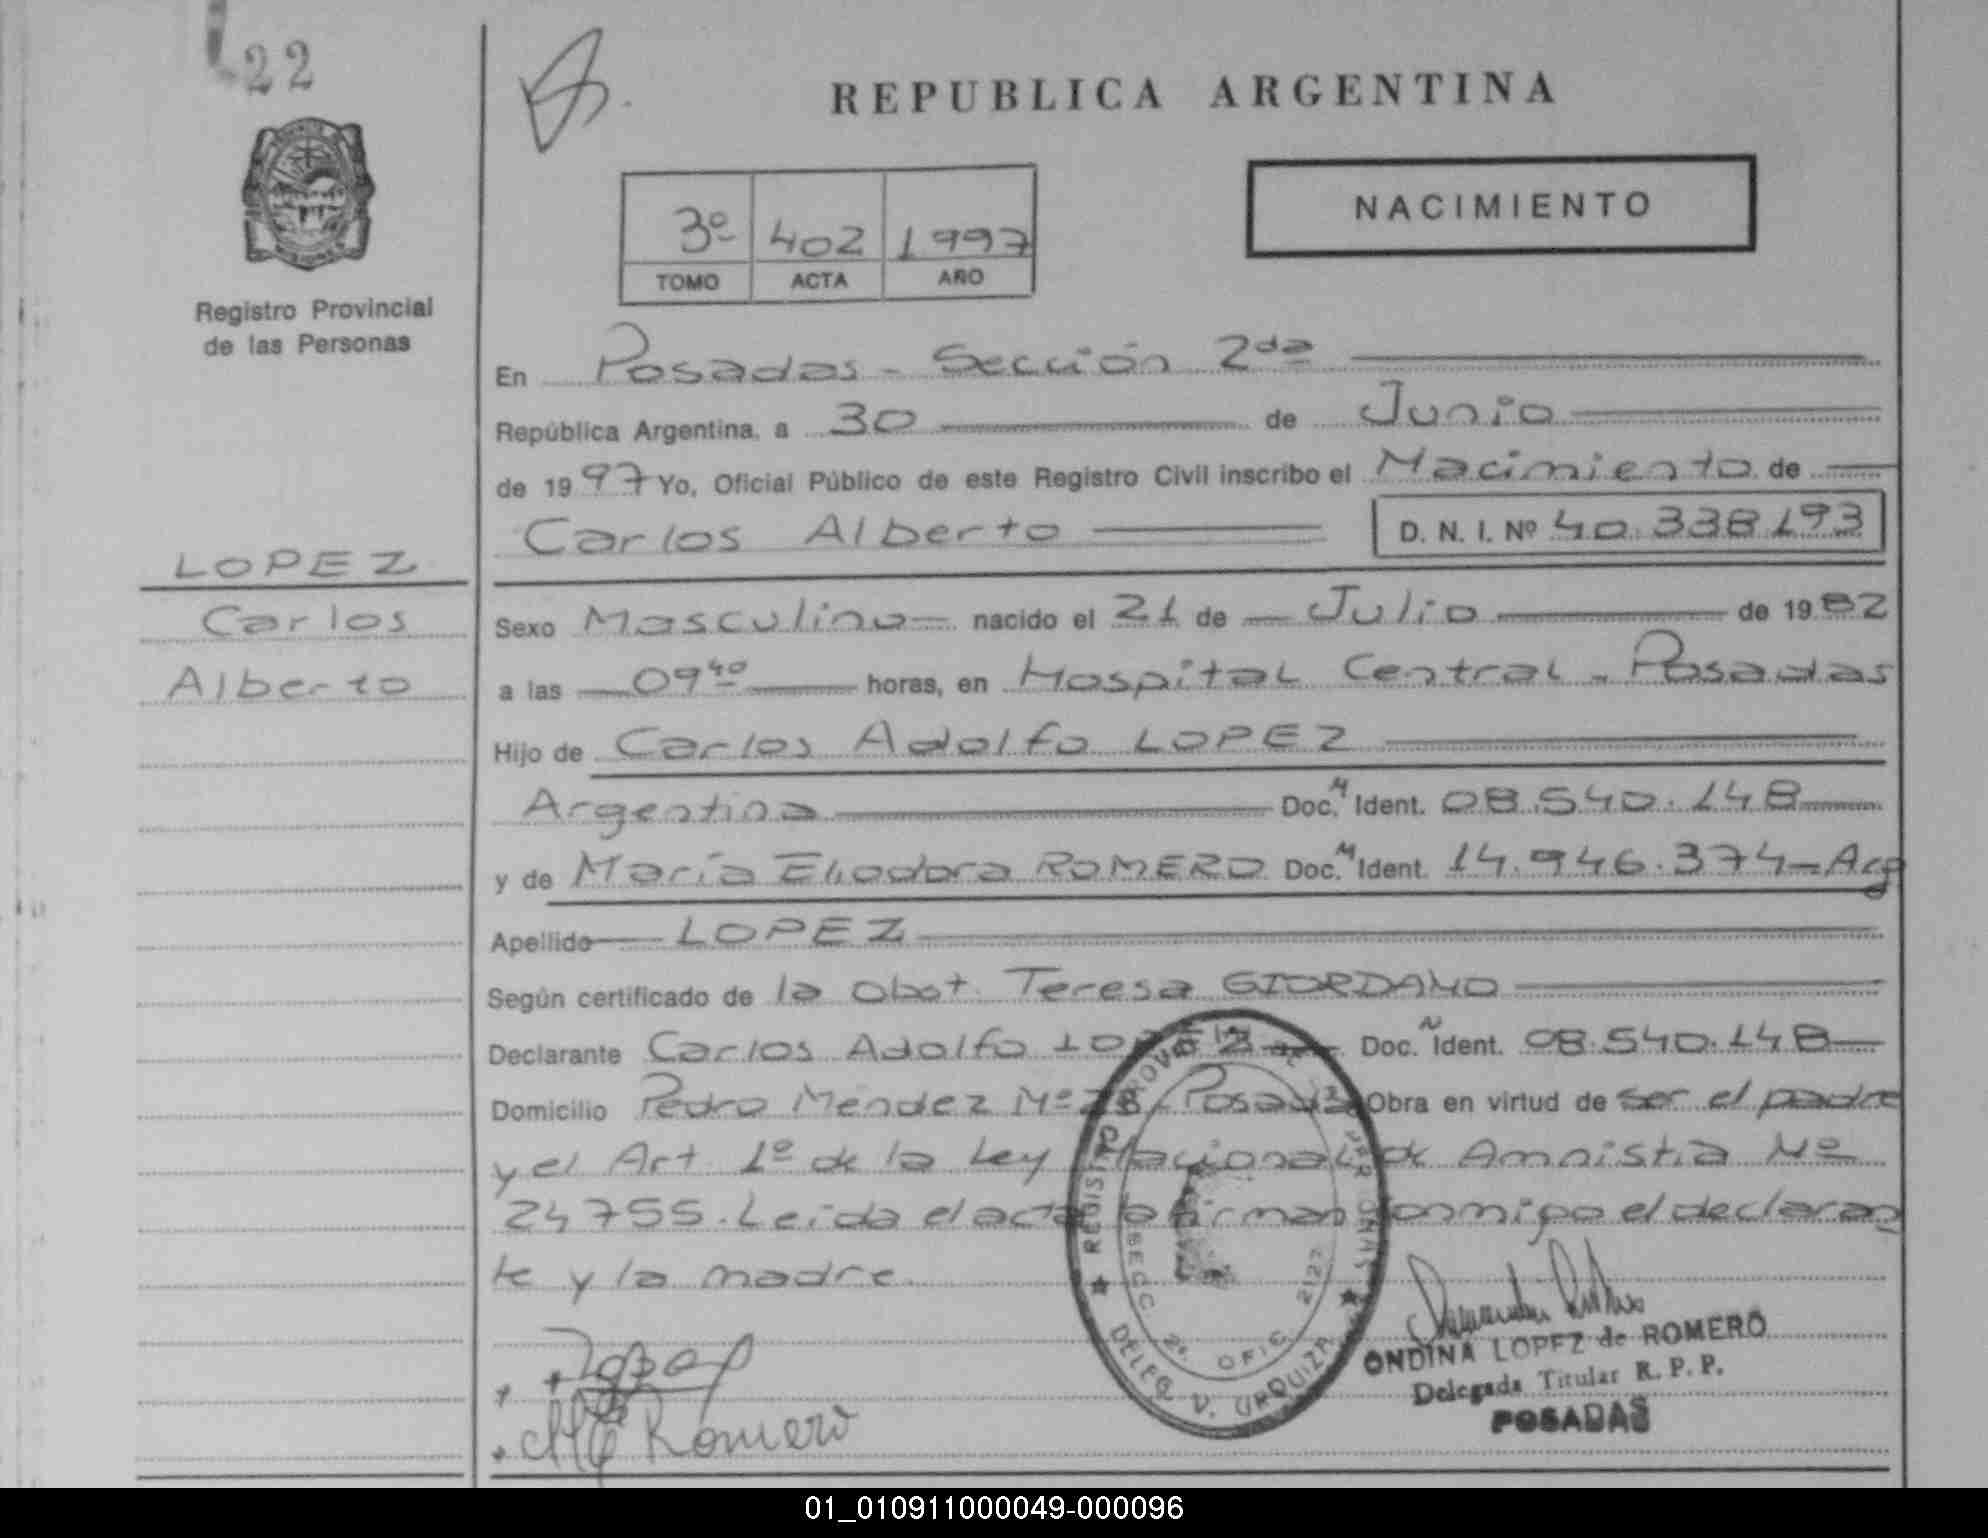 22
REPUBLICA ARGENTINA
NACIMIENTO
3º 402 1997
TOMO ACTA AÑO
Registro Provincial
de las Personas
En Posadas - Sección 2da
República Argentina, a 30 de Junio
de 1997 Yo, Oficial Público de este Registro Civil inscribo el Nacimiento de
Carlos Alberto D. N. I. Nº 40.338.193
LOPEZ
Carlos
Alberto
Sexo Masculino nacido el 21 de Julio de 1982
a las 09 40 horas, en Hospital Central - Posadas
Hijo de Carlos Adolfo LOPEZ
Argentina Doc. N Ident. 08.540.148
y de María Eliodora ROMERO Doc. N Ident. 14.946.374 - Arg
Apellido LOPEZ
Según certificado de la obst. Teresa GIORDANO
Declarante Carlos Adolfo LOPEZ Doc. N Ident. 08.540.148
Domicilio Pedro Mendez Nº 28, Posadas Obra en virtud de ser el padre
y el Art. 1º de la Ley Nacional de Amnistia Nº
24755. Leida el acta la firman conmigo el declaran
te y la madre.
REGISTRO PROVINCIAL DE LAS PERSONAS
SECC 2ª OFIC 2122
DELEG V. URQUIZA
Lopez
Romero
ONDINA LOPEZ de ROMERO
Delegada Titular R. P. P.
POSADAS
01_010911000049-000096